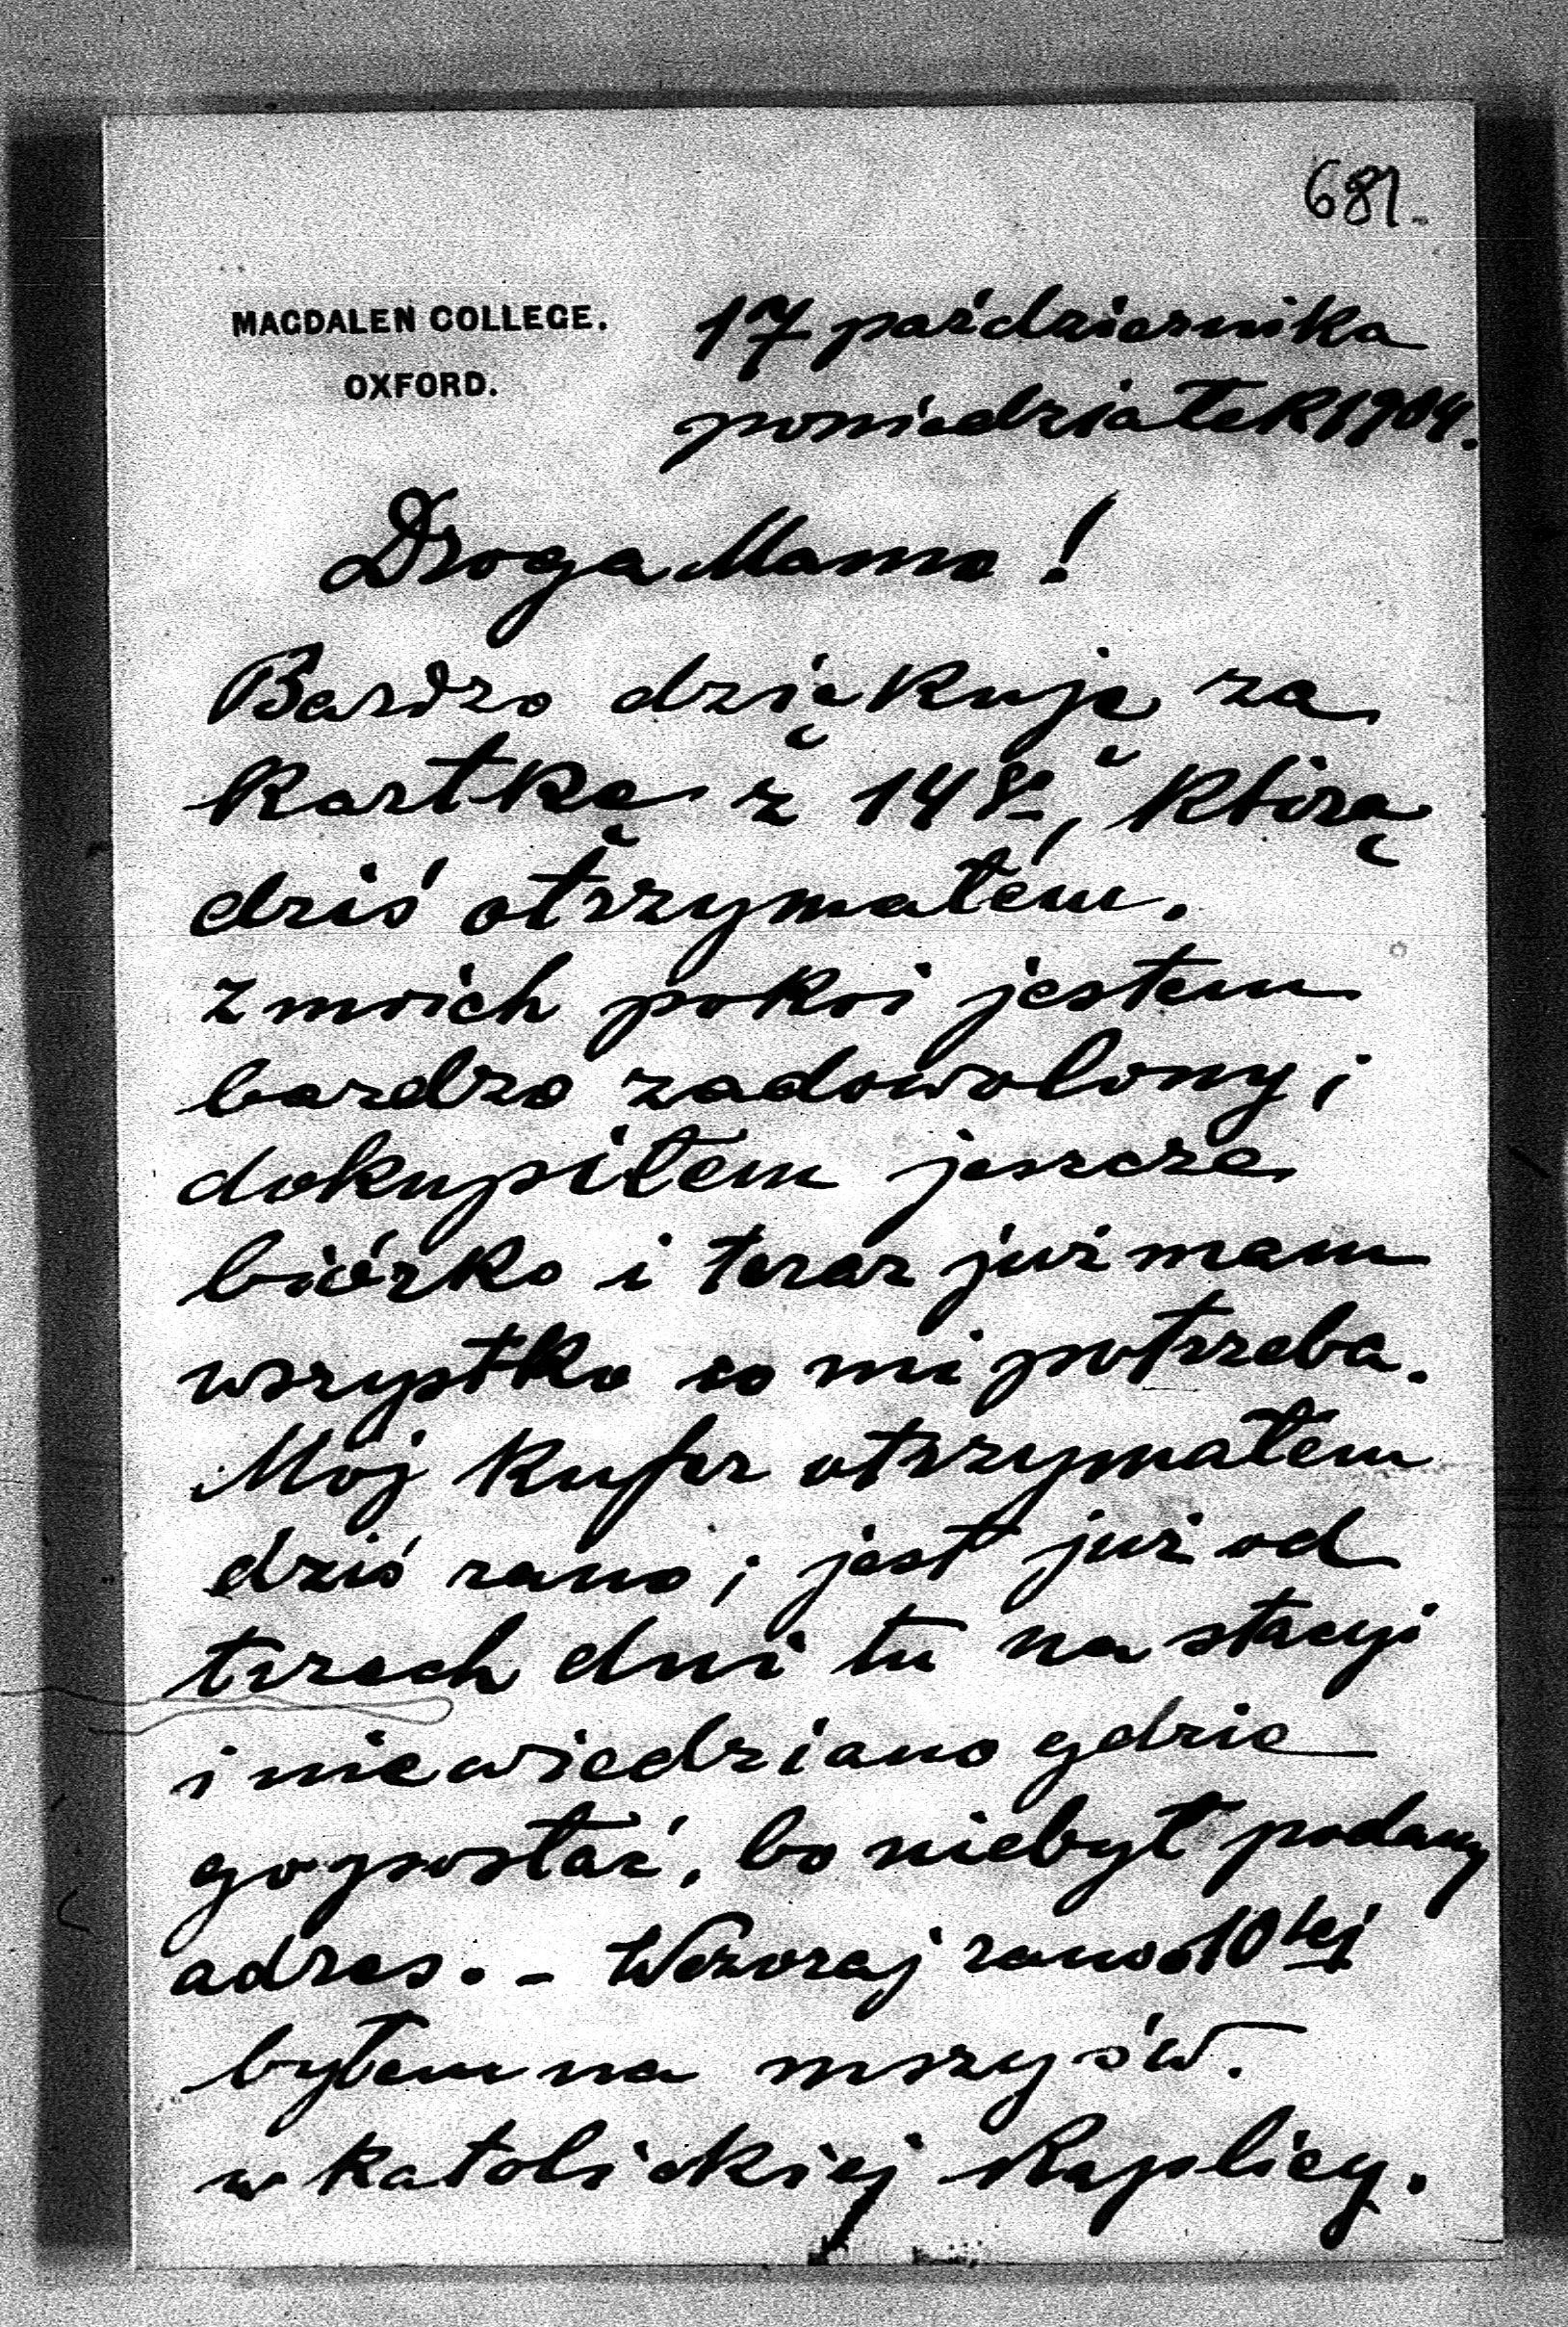 681.
MAGDALEN COLLEGE.
OXFORD.
17 października
poniedziałek 1904.
Droga Mamo!
Bardzo dziękuję za
kartkę z 14 go, którą
dziś otrzymałem.
Z moich pokoi jestem
bardzo zadowolony;
dokupiłem jeszcze
biórko i teraz już mam
wszystko co mi potrzeba.
Mój kufer otrzymałem
dziś rano; jest już od
trzech dni tu na stacyi
i nie wiedziano gdzie
go posłać, bo niebył podany
adres. – Wczoraj rano o 10 tej
byłem na mszy św.
w katolickiej kaplicy.